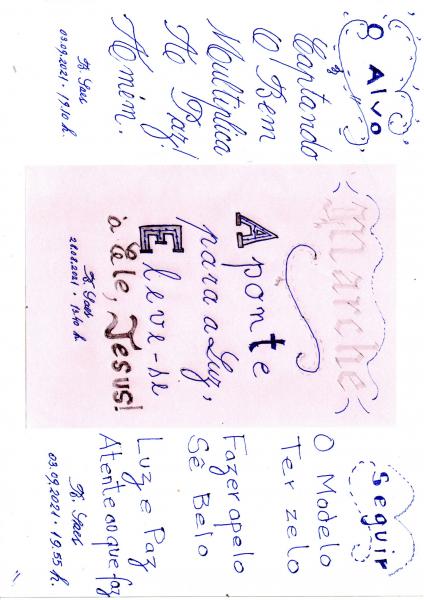 O Alvo
Captando
O Bem
Multiplica
A Paz!
Amém.
03.09.2021 · 19.10 h.
Marche
Aponte
para a Luz,
Eleve-se
à Ele, Jesus!
28.08.2021 · 13.40 h.
Seguir
O Modelo
Ter zelo
Fazer apelo
Sê Belo
Luz e Paz
Atente ao que faz
03.09.2021 · 19.55 h.